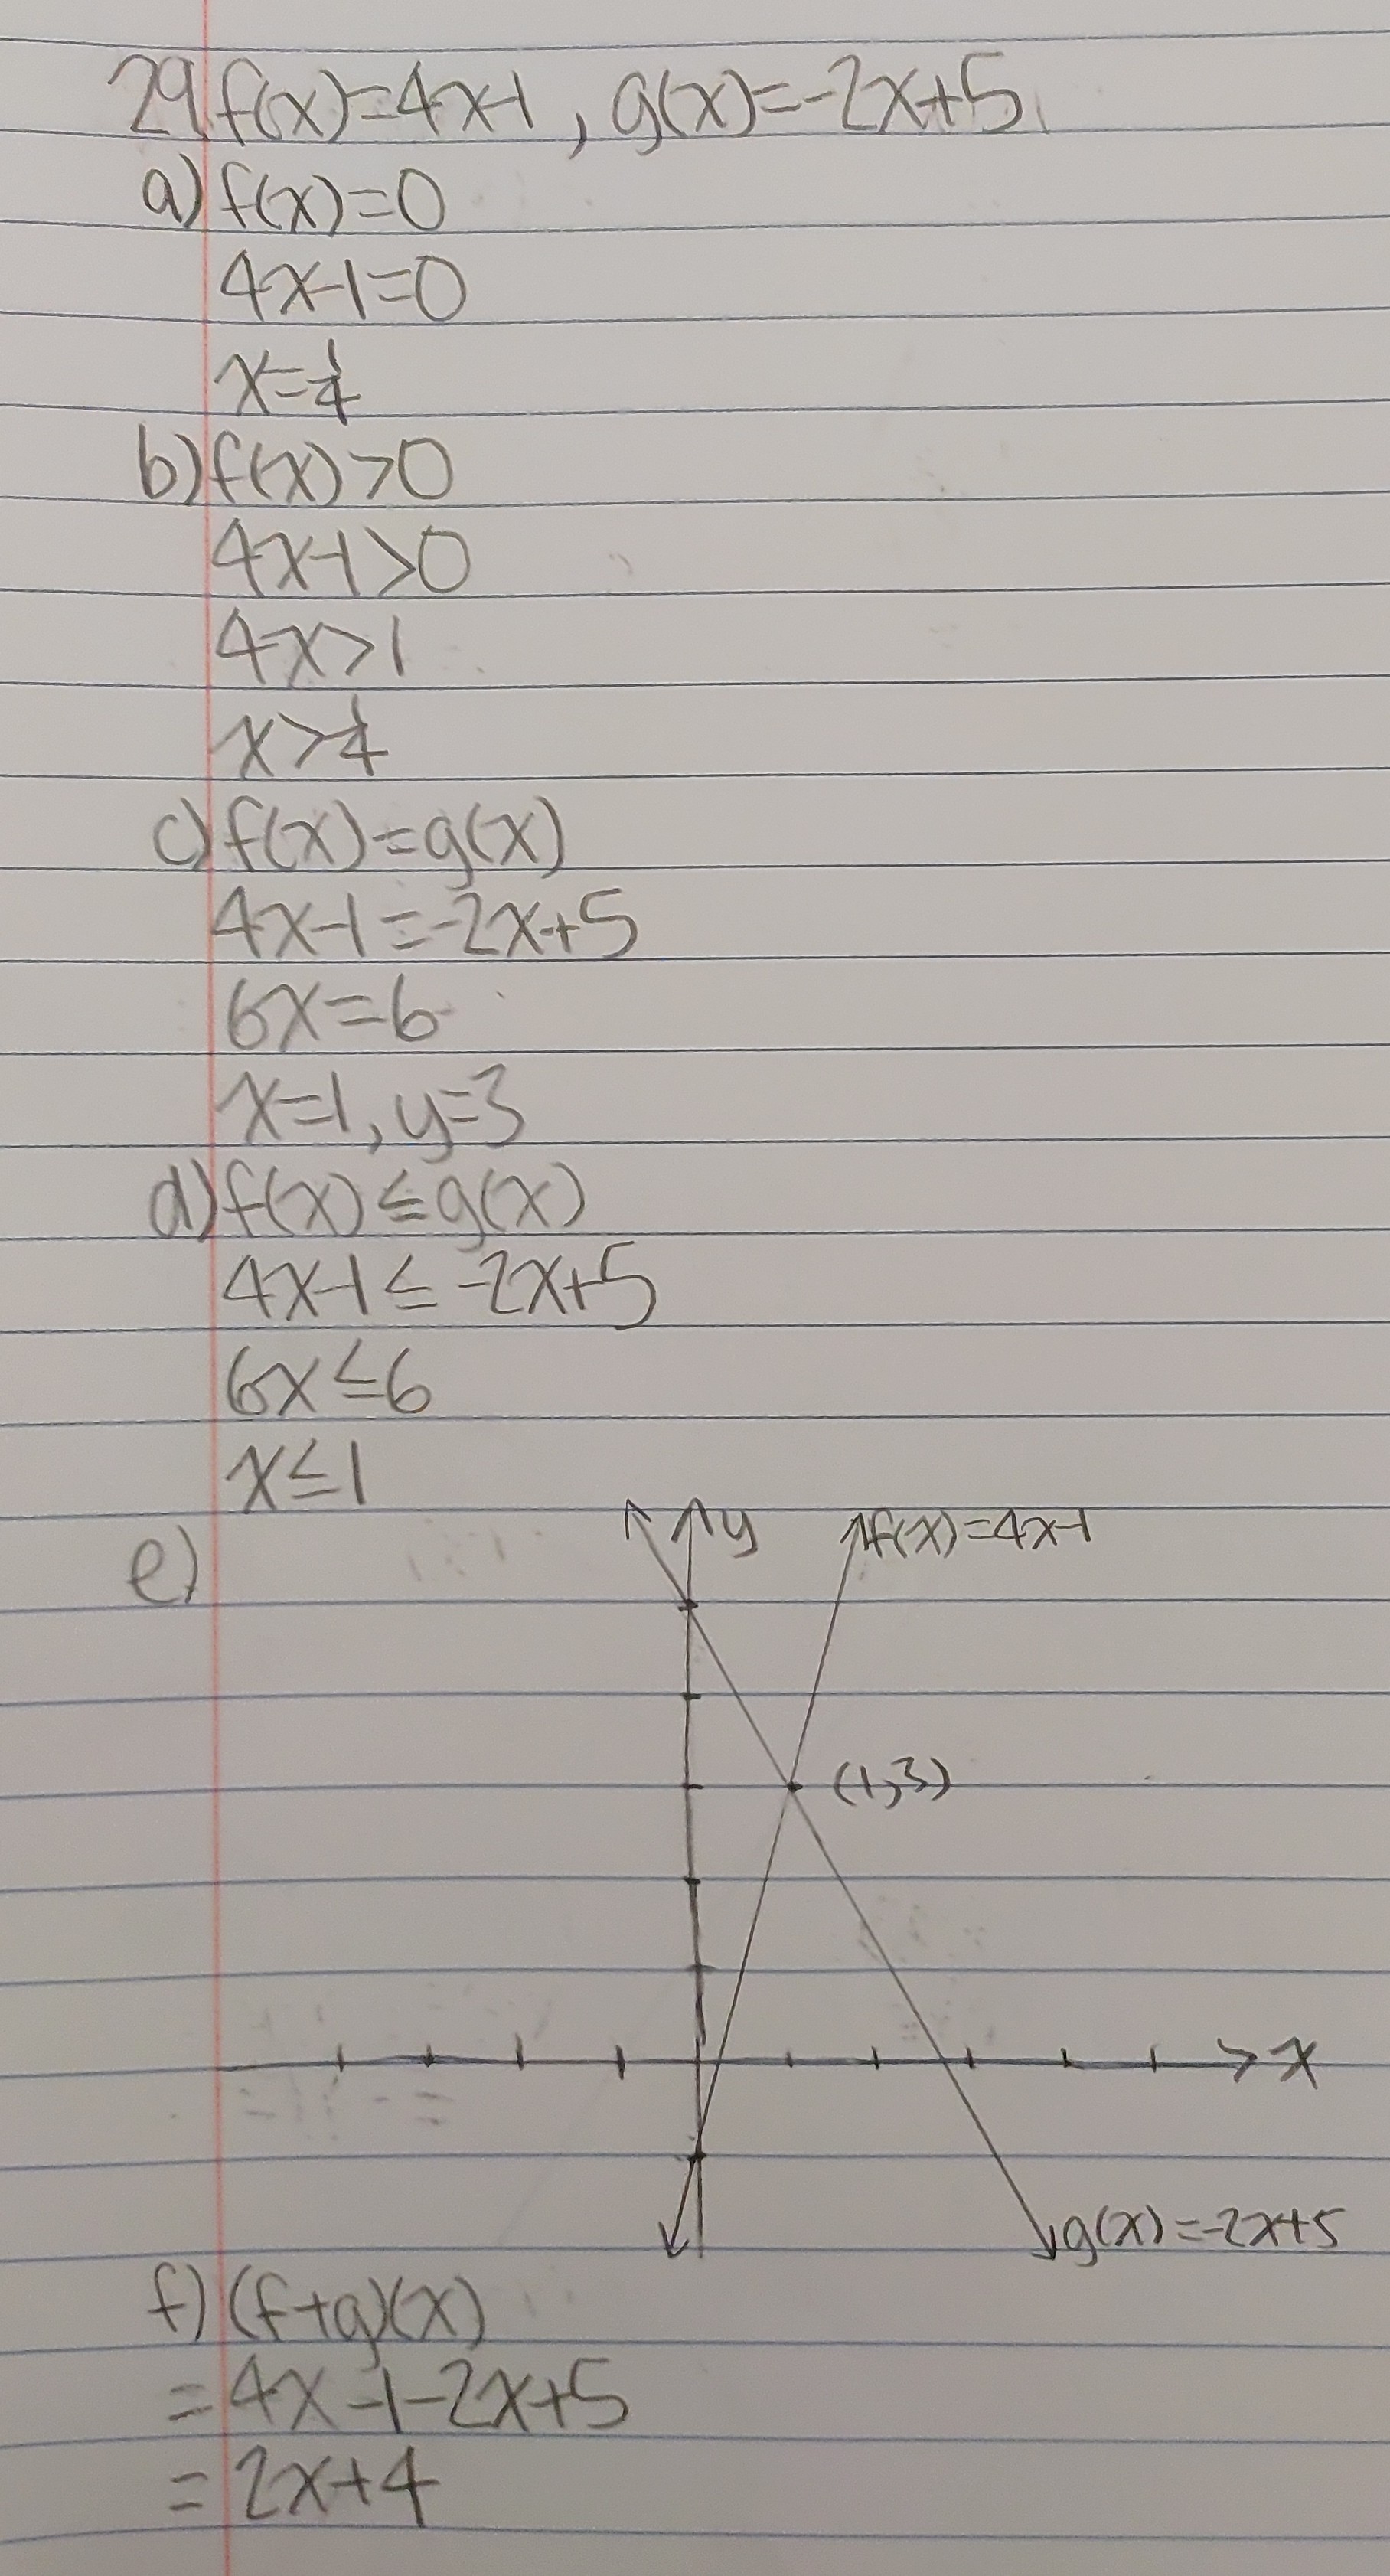 29) f(x)=4x-1, g(x)=-2x+5
a) f(x)=0
4x-1=0
x=1/4
b) f(x)>0
4x-1>0
4x>1
x>1/4
c) f(x)=g(x)
4x-1=-2x+5
6x=6
x=1, y=3
d) f(x)≤g(x)
4x-1≤-2x+5
6x≤6
x≤1
e)
y
f(x)=4x-1
(1,3)
x
g(x)=-2x+5
f) (f+g)(x)
=4x-1-2x+5
=2x+4